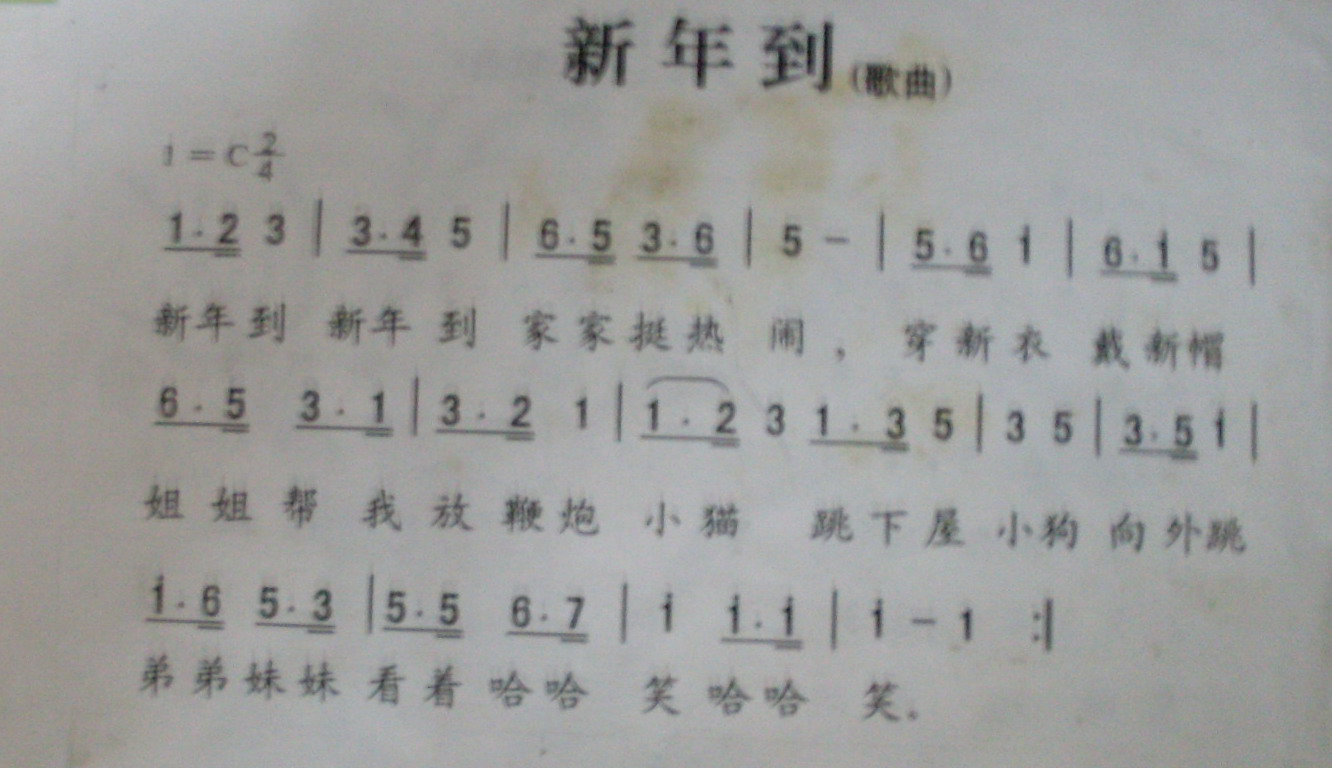 新年到(歌曲)
1=C 2/4
1·2 3 | 3·4 5 | 6·5 3·6 | 5 - | 5·6 i | 6·i 5 |
新年到 新年到 家家挺热闹，穿新衣 戴新帽
6·5 3·1 | 3·2 1 | 1·2 3 1·3 5 | 3 5 | 3·5 i |
姐姐帮我放鞭炮 小猫 跳下屋 小狗 向外跳
i·6 5·3 | 5·5 6·7 | i i·i | i - 1 :|
弟弟妹妹 看着哈哈 笑哈哈 笑。